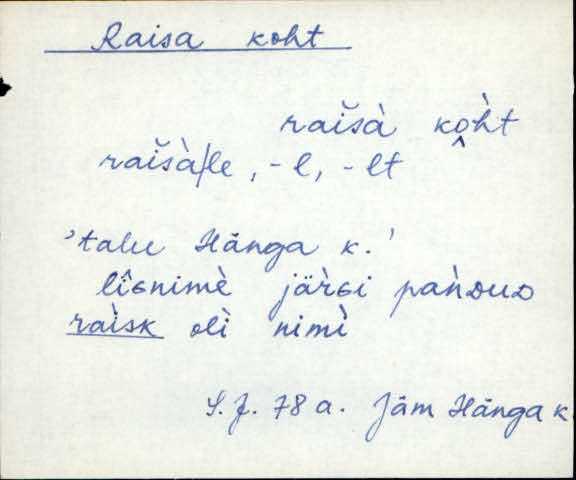 Raisa koht
raišà kòht
raišà/le, -l, -lt
'talu Hänga k.'
lîsnimè järsi pànDuD
raìsk olì nimì
S. J. 78 a. Jäm Hänga k